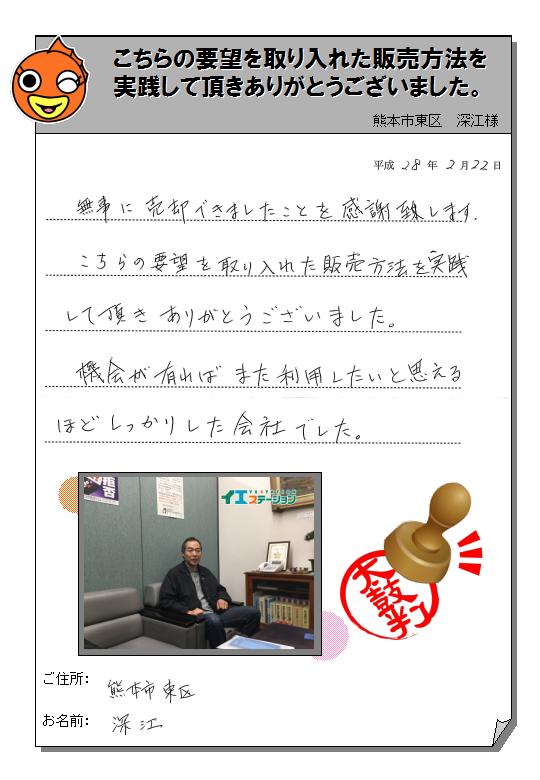 こちらの要望を取り入れた販売方法を
実践して頂きありがとうございました。
熊本市東区 深江様
平成 28 年 2 月 22 日
無事に売却できましたことを感謝致します.
こちらの要望を取り入れた販売方法を実践
して頂きありがとうございました。
機会が有ればまた利用したいと思える
ほどしっかりした会社でした。
拒否
イエステーション
YESSTATION
太鼓判
ご住所: 熊本市東区
お名前: 深江